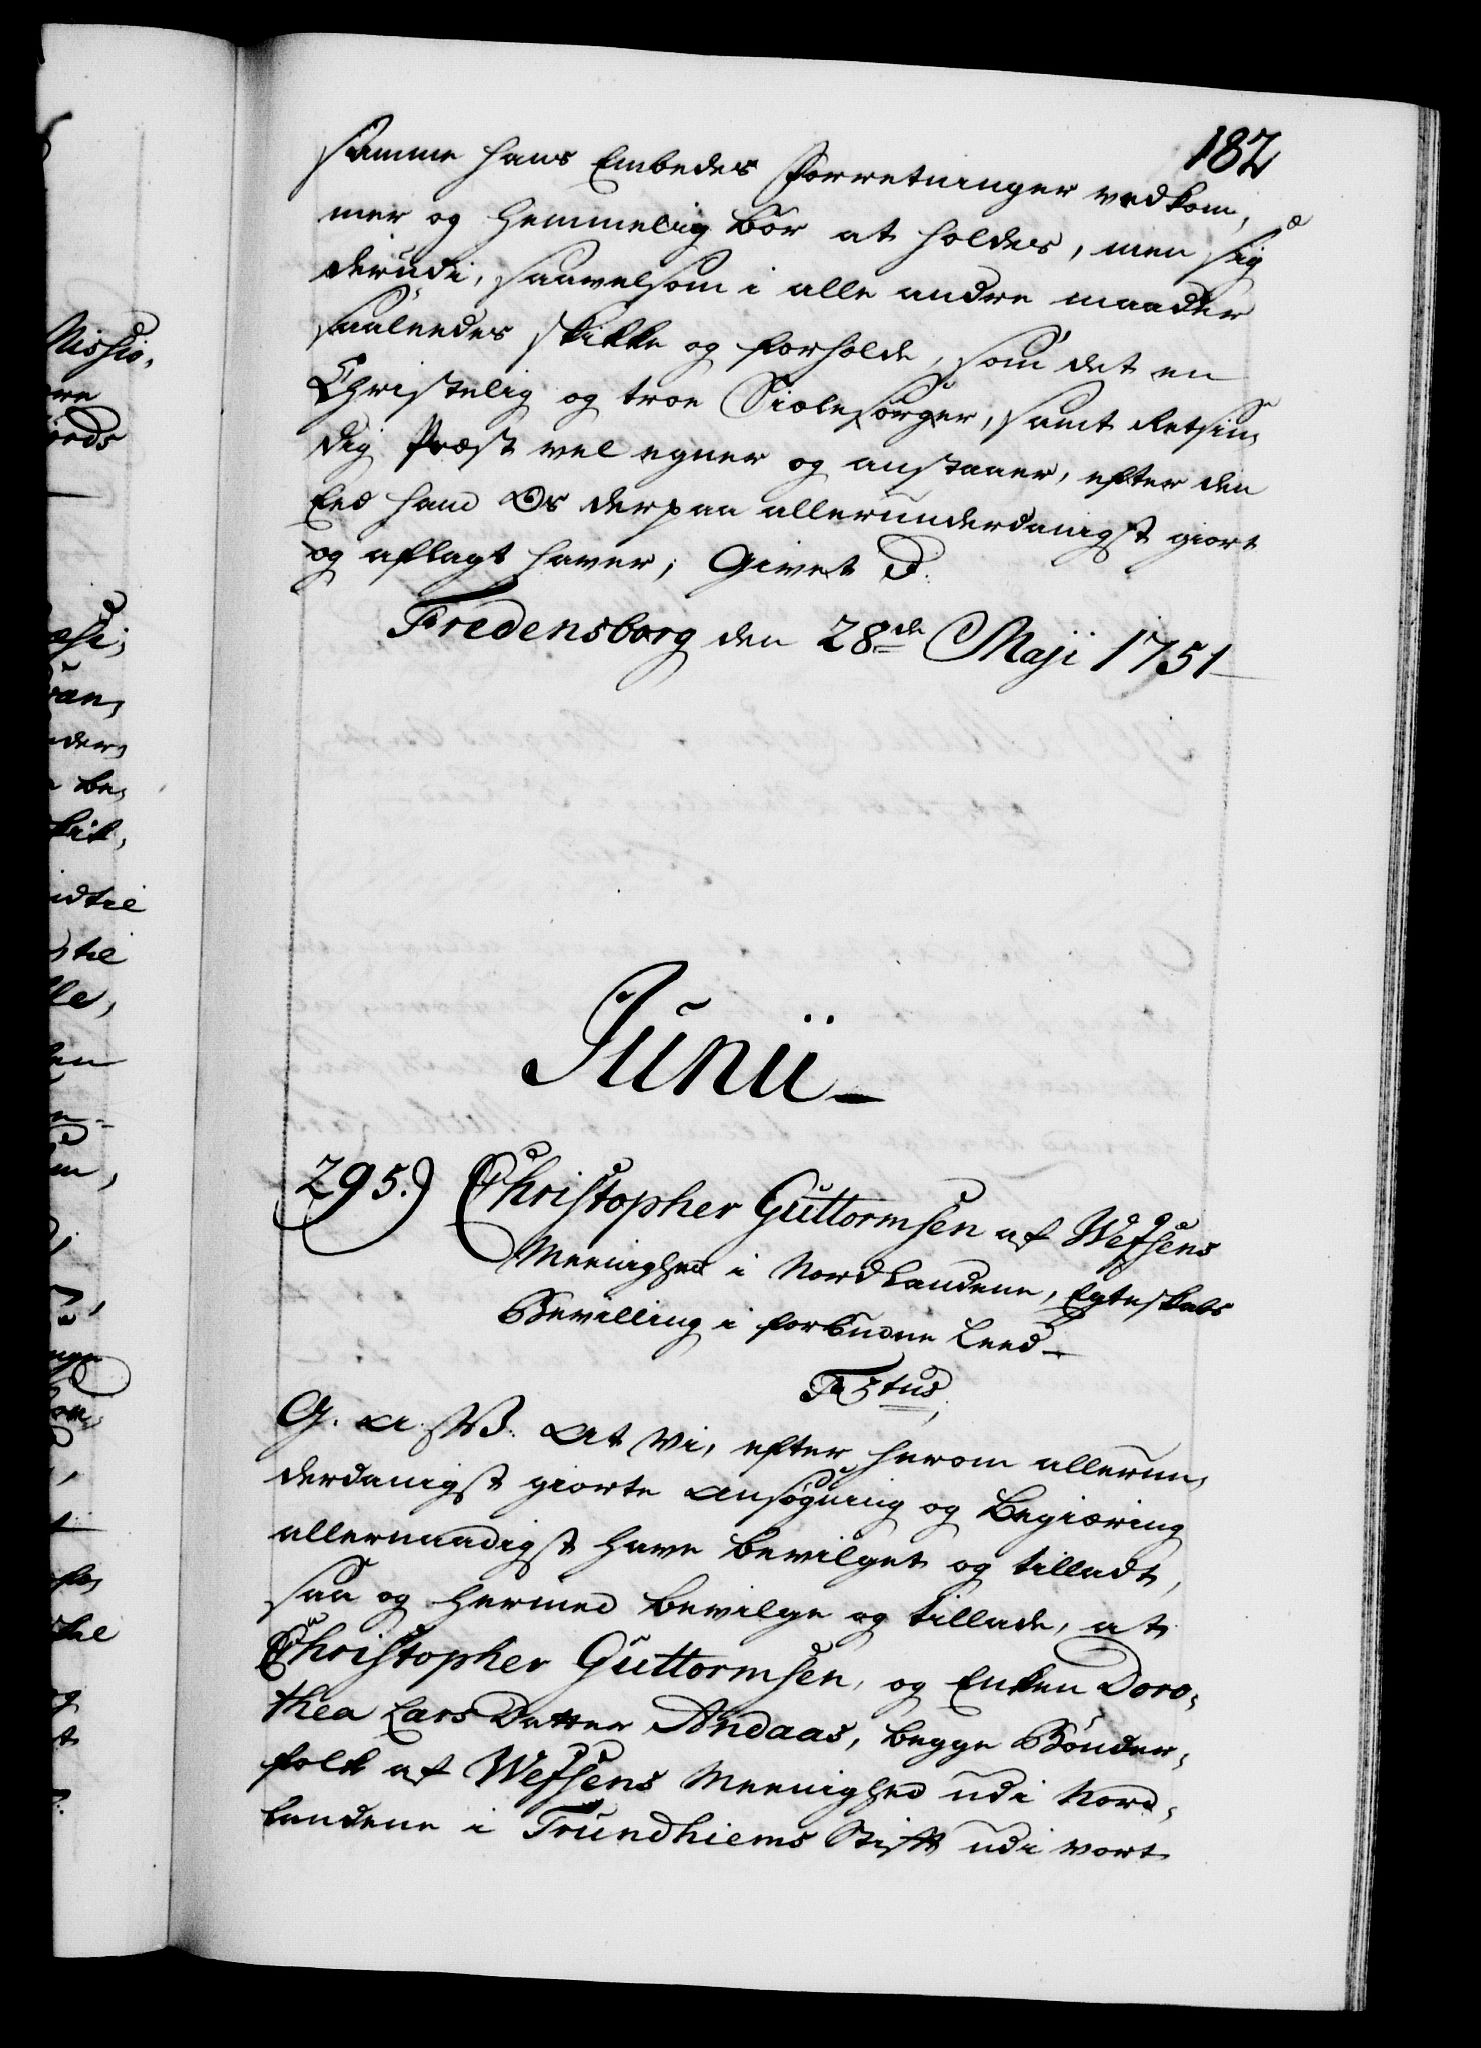 182
samme hans Embedes Forretninger vedkom,
mer og hemmelig bör at holdes, men sig
derudi, saavelsom i alle andre maader
saaledes skikke og forholde, som det en
Christelig og troe Siælesörger, samt Retsin,
dig Præst vel egner og anstaaer, efter den
Eed hand Os derpaa allerunderdanigst giort
og aflagt haver, Givet p.
Fredensborg den 28de Maji 1751
Junii
295.) Christopher Guttormsen af Wefsens
Meenighed i Nordlandene, Egteskabs
Bevilling i forbudne Leed
F 3tus
G. A. V. At Vi, efter herom allerun,
derdanigst giorte Ansøgning og Begiæring
allernaadigst have bevilget og tilladt,
saa og hermed bevilge og tillade, at
Christopher Guttormsen, og Enken Doro,
thea Lars Datter Andaas, begge Bönder,
folk af Wefsens Meenighed udi Nord,
landene i Trundhiems Stift udi vort